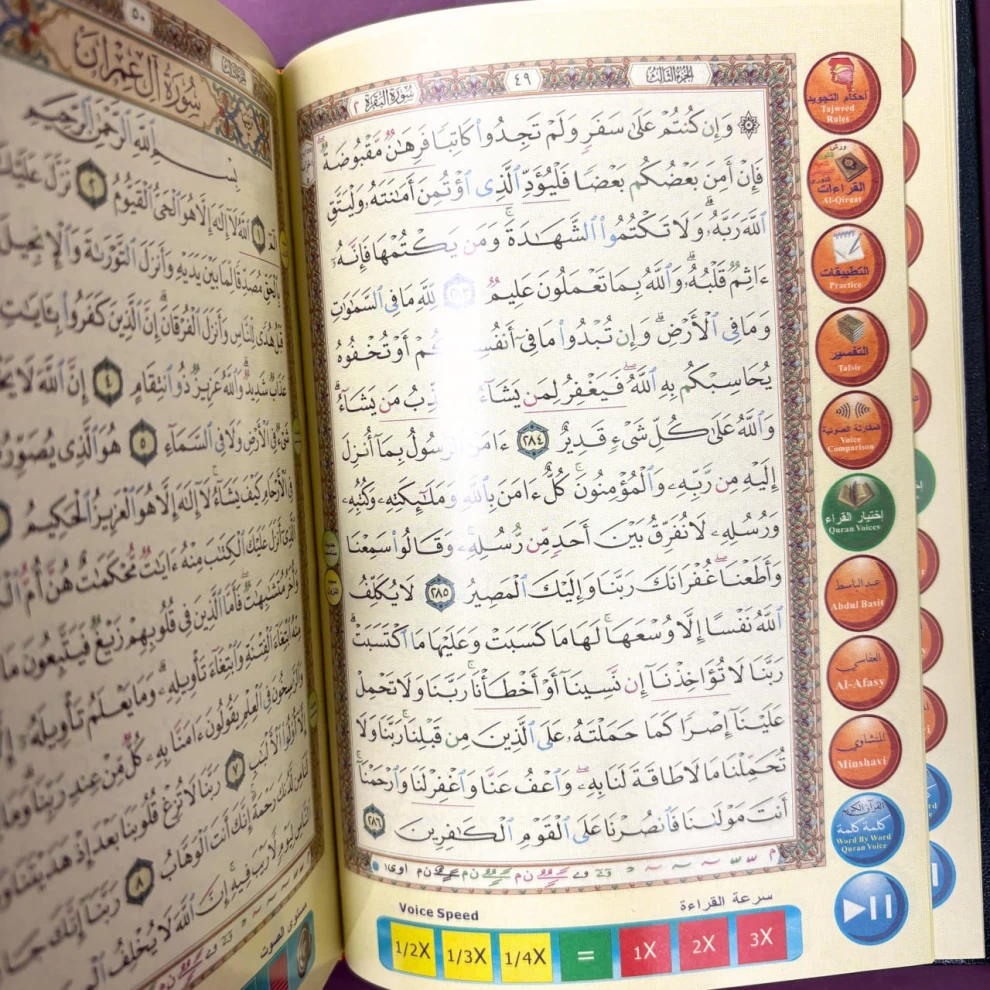 سورة البقرة ٢
٤٩
الجزء الثالث
۞ وَإِن كُنتُمْ عَلَىٰ سَفَرٍ وَلَمْ تَجِدُوا۟ كَاتِبًا فَرِهَـٰنٌ مَّقْبُوضَةٌ ۖ
فَإِنْ أَمِنَ بَعْضُكُم بَعْضًا فَلْيُؤَدِّ ٱلَّذِى ٱؤْتُمِنَ أَمَـٰنَتَهُۥ وَلْيَتَّقِ
ٱللَّهَ رَبَّهُۥ ۗ وَلَا تَكْتُمُوا۟ ٱلشَّهَـٰدَةَ ۚ وَمَن يَكْتُمْهَا فَإِنَّهُۥٓ
ءَاثِمٌ قَلْبُهُۥ ۗ وَٱللَّهُ بِمَا تَعْمَلُونَ عَلِيمٌ ٢٨٣ لِّلَّهِ مَا فِى ٱلسَّمَـٰوَٰتِ
وَمَا فِى ٱلْأَرْضِ ۗ وَإِن تُبْدُوا۟ مَا فِىٓ أَنفُسِكُمْ أَوْ تُخْفُوهُ
يُحَاسِبْكُم بِهِ ٱللَّهُ ۖ فَيَغْفِرُ لِمَن يَشَآءُ وَيُعَذِّبُ مَن يَشَآءُ ۗ
وَٱللَّهُ عَلَىٰ كُلِّ شَىْءٍ قَدِيرٌ ٢٨٤ ءَامَنَ ٱلرَّسُولُ بِمَآ أُنزِلَ
إِلَيْهِ مِن رَّبِّهِۦ وَٱلْمُؤْمِنُونَ ۚ كُلٌّ ءَامَنَ بِٱللَّهِ وَمَلَـٰٓئِكَتِهِۦ وَكُتُبِهِۦ
وَرُسُلِهِۦ لَا نُفَرِّقُ بَيْنَ أَحَدٍ مِّن رُّسُلِهِۦ ۚ وَقَالُوا۟ سَمِعْنَا
وَأَطَعْنَا ۖ غُفْرَانَكَ رَبَّنَا وَإِلَيْكَ ٱلْمَصِيرُ ٢٨٥ لَا يُكَلِّفُ
ٱللَّهُ نَفْسًا إِلَّا وُسْعَهَا ۚ لَهَا مَا كَسَبَتْ وَعَلَيْهَا مَا ٱكْتَسَبَتْ ۗ
رَبَّنَا لَا تُؤَاخِذْنَآ إِن نَّسِينَآ أَوْ أَخْطَأْنَا ۚ رَبَّنَا وَلَا تَحْمِلْ
عَلَيْنَآ إِصْرًا كَمَا حَمَلْتَهُۥ عَلَى ٱلَّذِينَ مِن قَبْلِنَا ۚ رَبَّنَا وَلَا
تُحَمِّلْنَا مَا لَا طَاقَةَ لَنَا بِهِۦ ۖ وَٱعْفُ عَنَّا وَٱغْفِرْ لَنَا وَٱرْحَمْنَآ ۚ
أَنتَ مَوْلَىٰنَا فَٱنصُرْنَا عَلَى ٱلْقَوْمِ ٱلْكَـٰفِرِينَ ٢٨٦
Voice Speed
سرعة القراءة
1/2X 1/3X 1/4X = 1X 2X 3X
أحكام التجويد
Tajweed
Rules
ورش
القراءات
Al-Qiraat
التطبيقات
Practice
التفسير
Tafsir
المقارنة الصوتية
Voice
Comparison
إختيار القراء
Quran Voices
عبدالباسط
Abdul Basit
العفاسي
Al-Afasy
المنشاوي
Minshavi
القرآن الكريم
كلمة كلمة
Word By Word
Quran Voice
٥٠
سورة آل عمران
بسم الله الرحمن الرحيم
الٓمٓ ١ ٱللَّهُ لَآ إِلَـٰهَ إِلَّا هُوَ ٱلْحَىُّ ٱلْقَيُّومُ ٢ نَزَّلَ عَلَيْكَ
بِٱلْحَقِّ مُصَدِّقًا لِّمَا بَيْنَ يَدَيْهِ وَأَنزَلَ ٱلتَّوْرَىٰةَ وَٱلْإِنجِيلَ
قَبْلُ هُدًى لِّلنَّاسِ وَأَنزَلَ ٱلْفُرْقَانَ ۗ إِنَّ ٱلَّذِينَ كَفَرُوا۟ بِـَٔايَـٰتِ
عَذَابٌ شَدِيدٌ ۗ وَٱللَّهُ عَزِيزٌ ذُو ٱنتِقَامٍ ٤ إِنَّ ٱللَّهَ لَا
شَىْءٌ فِى ٱلْأَرْضِ وَلَا فِى ٱلسَّمَآءِ ٥ هُوَ ٱلَّذِى يُصَوِّرُ
فِى ٱلْأَرْحَامِ كَيْفَ يَشَآءُ ۚ لَآ إِلَـٰهَ إِلَّا هُوَ ٱلْعَزِيزُ ٱلْحَكِيمُ
ٱلَّذِىٓ أَنزَلَ عَلَيْكَ ٱلْكِتَـٰبَ مِنْهُ ءَايَـٰتٌ مُّحْكَمَـٰتٌ هُنَّ أُمُّ
وَأُخَرُ مُتَشَـٰبِهَـٰتٌ ۖ فَأَمَّا ٱلَّذِينَ فِى قُلُوبِهِمْ زَيْغٌ فَيَتَّبِعُونَ مَا
مِنْهُ ٱبْتِغَآءَ ٱلْفِتْنَةِ وَٱبْتِغَآءَ تَأْوِيلِهِۦ ۗ وَمَا يَعْلَمُ تَأْوِيلَهُۥٓ
وَٱلرَّٰسِخُونَ فِى ٱلْعِلْمِ يَقُولُونَ ءَامَنَّا بِهِۦ كُلٌّ مِّنْ عِندِ رَبِّنَا ۗ وَمَا
إِلَّآ أُو۟لُوا۟ ٱلْأَلْبَـٰبِ ٧ رَبَّنَا لَا تُزِغْ قُلُوبَنَا بَعْدَ إِذْ هَدَيْتَنَا
لَنَا مِن لَّدُنكَ رَحْمَةً ۚ إِنَّكَ أَنتَ ٱلْوَهَّابُ ٨ رَبَّنَآ إِنَّكَ
ٱلنَّاسِ لِيَوْمٍ لَّا رَيْبَ فِيهِ ۚ إِنَّ ٱللَّهَ لَا يُخْلِفُ
مستوى الصوت